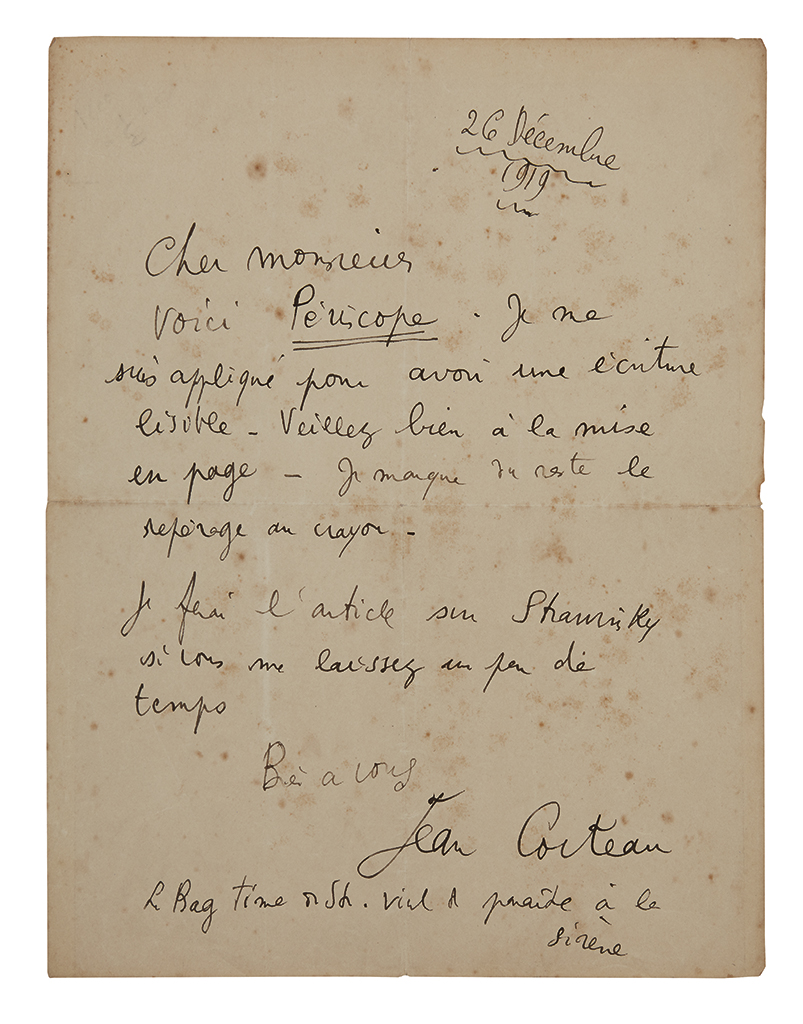 26 Décembre
1919
Cher monsieur
Voici Périscope. Je me
suis appliqué pour avoir une écriture
lisible – Veillez bien à la mise
en page – Je marque du reste le
repérage au crayon –
Je ferai l'article sur Strawinsky
si vous me laissez un peu de
temps
à vous
Jean Cocteau
Le Rag time de Str. vient de paraître à la
sirène